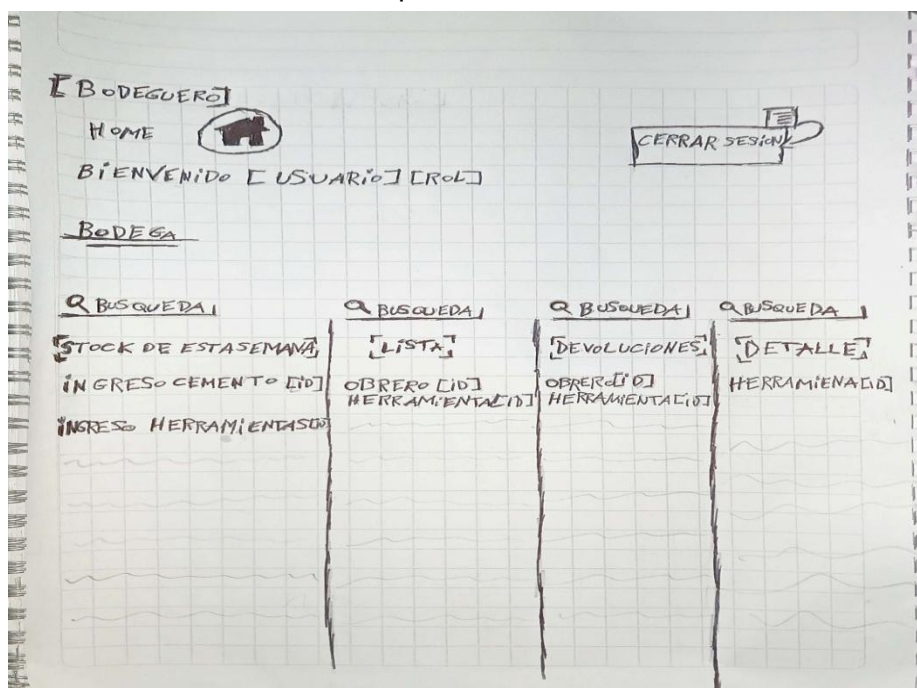 [BODEGUERO]
HOME
CERRAR SESION
BIENVENIDO [USUARIO] [ROL]
BODEGA
BUSQUEDA
[STOCK DE ESTA SEMANA]
INGRESO CEMENTO [ID]
INGRESO HERRAMIENTAS[ID]
BUSQUEDA
[LISTA]
OBRERO [ID]
HERRAMIENTA[ID]
BUSQUEDA
[DEVOLUCIONES]
OBRERO[ID]
HERRAMIENTA[ID]
BUSQUEDA
[DETALLE]
HERRAMIENA[ID]